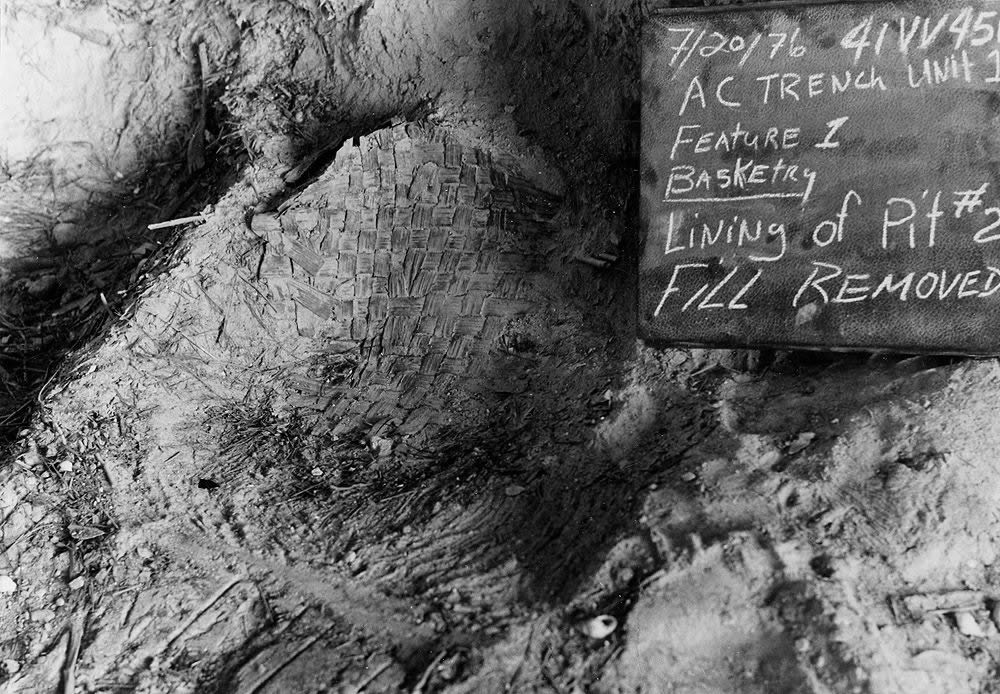 7/20/76 41VV45
AC TRENCH UNIT 1
FEATURE 1
BASKETRY
LiNiNg of Pit #2
FILL REMOVED